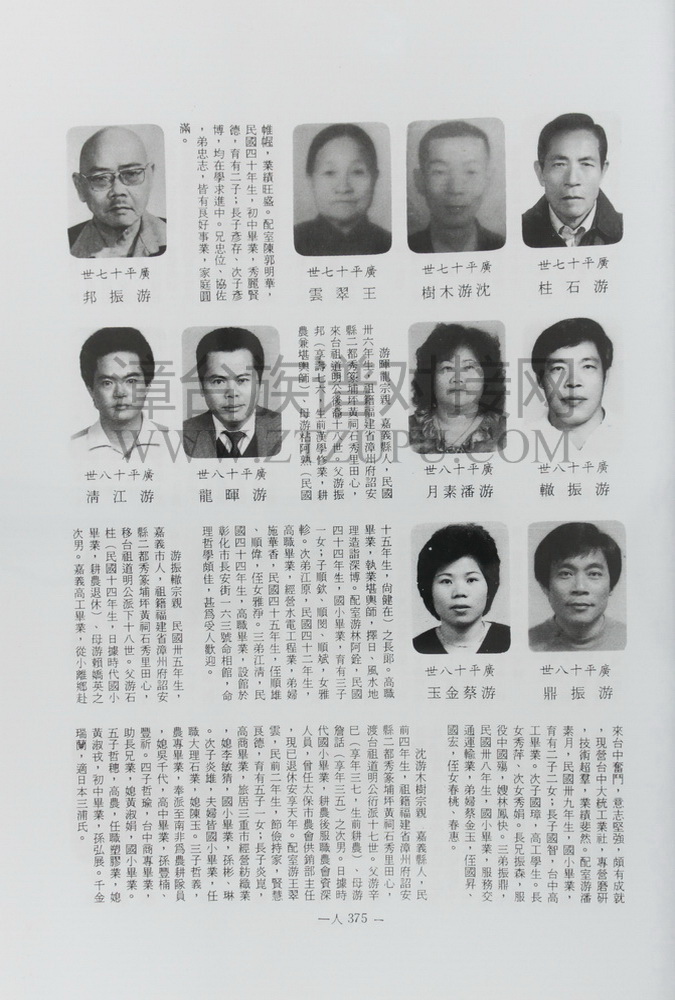 廣平十七世
游石柱
廣平十七世
沈游木樹
廣平十七世
王翠雲
帷幄，業績旺盛。配室陳郭明華，
民國四十年生，初中畢業，秀麗賢
德，育有二子；長子彥存、次子彥
博，均在學求進中。兄忠位、協佐
，弟忠志，皆有良好事業，家庭圓
滿。
廣平十七世
游振邦
廣平十八世
游振轍
廣平十八世
游潘素月
游暉龍宗親　嘉義縣人，民國
卅六年生，祖籍福建省漳州府詔安
縣二都秀篆埔坪黃祠石秀里田心，
來台祖道明公後裔十八世。父游振
邦（享壽七六，生前漢學修業，耕
農兼堪輿師）、母游粘阿熟（民國
廣平十八世
游暉龍
廣平十八世
游江清
廣平十八世
游振鼎
廣平十八世
游蔡金玉
十五年生，尙健在）之長郞。高職
畢業，執業堪輿師，擇日、風水地
理造詣深博。配室游林阿銓，民國
四十四年生，國小畢業，育有三子
一女；子順欽、順閔、順斌，女雅
軫。次弟江原，民國四十二年生，
高職畢業，經營水電工程業，弟婦
施華香，民國四十五年生，侄順雄
、順偉，侄女雅淨。三弟江清，民
國四十四年生，高職畢業，設館於
彰化市長安街一六三號命相館，命
理哲學頗佳，甚爲受人歡迎。
游振轍宗親　民國卅五年生，
嘉義市人，祖籍福建省漳州府詔安
縣二都秀篆埔坪黃祠石秀里田心，
移台祖道明公派下十八世。父游石
柱（民國十四年生，日據時代國小
畢業，耕農退休）、母游賴嬌英之
次男。嘉義高工畢業，從小離鄉赴
來台中奮鬥，意志堅強，頗有成就
，現營台中大統工業社，專營磨研
，技術超羣，業績斐然。配室游潘
素月，民國卅九年生，國小畢業，
育有二子二女；長子國智，台中高
工畢業。次子國璋，高工學生。長
女秀萍、次女秀娟。長兄振森，服
役中國陽，嫂林鳳快。三弟振鼎，
民國卅八年生，國小畢業，服務交
通運輸業，弟婦蔡金玉，侄國昇、
國宏，侄女春桃、春惠。
沈游木樹宗親　嘉義縣人，民
前四年生，祖籍福建省漳州府詔安
縣二都秀篆埔坪黃祠石秀里田心，
渡台祖道明公衍派十七世。父游辛
巳（享年三七，生前耕農）、母游
詹話（享年三五）之次男。日據時
代國小畢業，耕農後服職農會資深
人員，曾任太保市農會供銷部主任
，現已退休安享天年。配室游王翠
雲，民前二年生，節儉持家，賢慧
良德，育有五子一女；長子炎崑，
高商畢業，旅居三重市經營紡織業
，媳李敏猜，國小畢業，孫彬、琳
。次子炎雄，夫婦皆國小畢業，任
職大理石業，媳陳玉。三子哲義，
農專畢業，奉派至南非爲農耕隊員
，媳吳千代，高中畢業，孫豐楠、
豐祈。四子哲瑜，台中商專畢業，
助長兄業，媳黃淑娟，國小畢業。
五子哲穗，高農，任職塑膠業，媳
黃淑祯，初中畢業，孫弘展。千金
瑞蘭，適日本三浦氏。
—人 375 —
漳台族谱对接网
WWW.ZTZUPU.COM